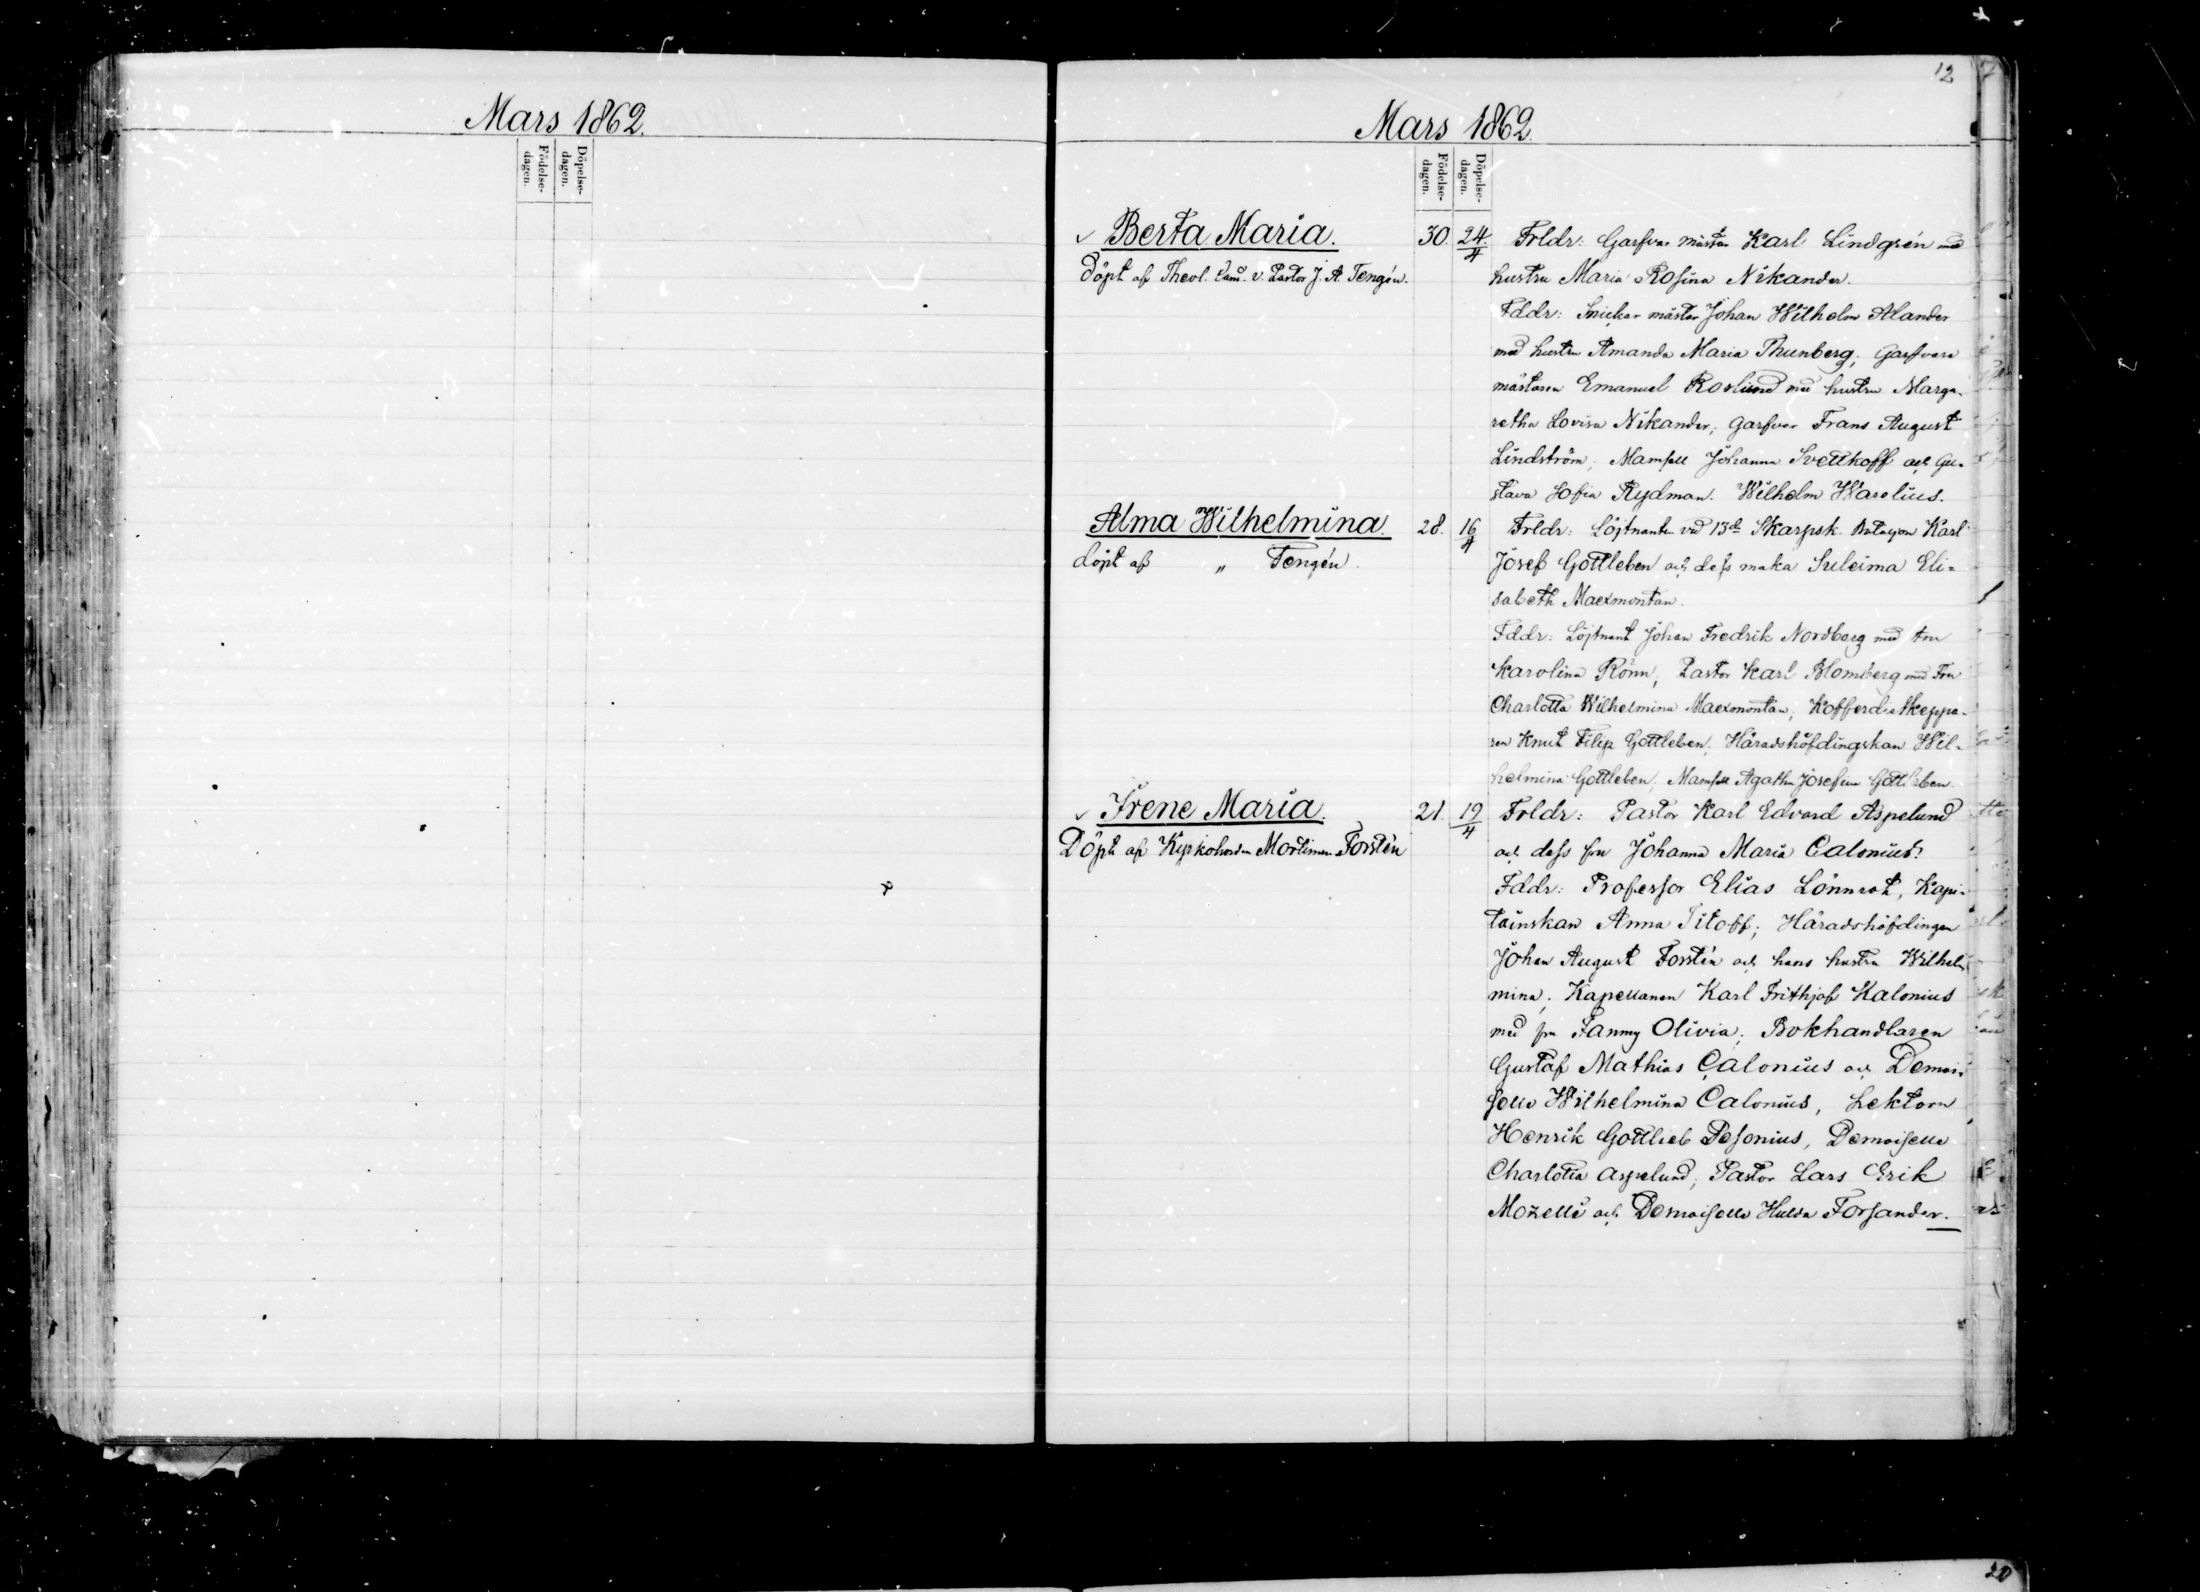 Mars 1862.
Födelse-
dagen.
Döpelse-
dagen.
12
Mars 1862.
Födelse-
dagen.
Döpelse-
dagen.
Berta Maria. 30. 24/4 Frldr: Garfvar mästar Karl Lindgrén med
Döpt af Theol. Cand. v. Pastor J. A. Tengén. hustru Maria Rosina Nikander.
Fddr: Snickar mästar Johan Wilhelm Alander
med hustru Amanda Maria Thunberg; Garfvare
mästaren Emanuel Roslund med hustru Marga-
retha Lovisa Nikander; Garfvar Frans August
Lindström; Mamsell Johanna Svettkoff och Gu-
stava Sofia Rydman. Wilhelm Warelius.
Alma Wilhelmina. 28. 16/4 Frldr: Löjtnanten vid 13de Skarpsk. Bataljon Karl
döpt af „ Tengén. Josef Gottleben och dess maka Suleima Eli-
sabeth Maexmontan.
Fddr: Löjtnant Johan Fredrik Nordberg med fru
Karolina Rönn; Pastor Karl Blomberg med Fru
Charlotta Wilhelmina Maexmontan; Kofferdieskeppa-
ren Knut Filip Gottleben; Häradshöfdingskan Wil-
helmina Gottleben; Mamsell Agatha Josefina Gottleben.
Irene Maria. 21. 19/4 Frldr: Pastor Karl Edvard Aspelund
Döpt af Kyrkoherden Mortimer Forstén och dess fru Johanna Maria Calonius.
Fddr: Professor Elias Lönnrot, Kapi-
tainskan Anna Titoff; Häradshöfdingen
Johan August Forstén och hans hustru Wilhel-
mina; Kapellanen Karl Frithjof Kalonius
med fru Fanny Olivia; Bokhandlaren
Gustaf Mathias Calonius och Demoi-
selle Wilhelmina Calonius, Lektorn
Henrik Gottlieb Pesonius, Demoiselle
Charlotta Aspelund; Pastor Lars Erik
Mozelli och Demoiselle Hulda Forsander.
20